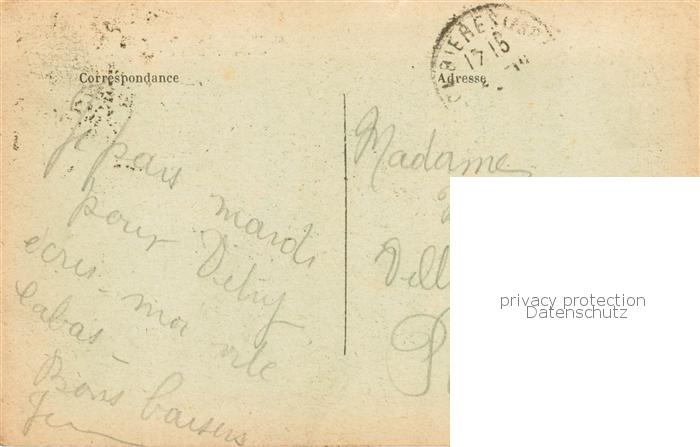 Correspondance
Adresse
17 15
Je pars mardi
pour Vitry
écris-moi vite
labas
Bons baisers
Madame
Vill
privacy protection
Datenschutz